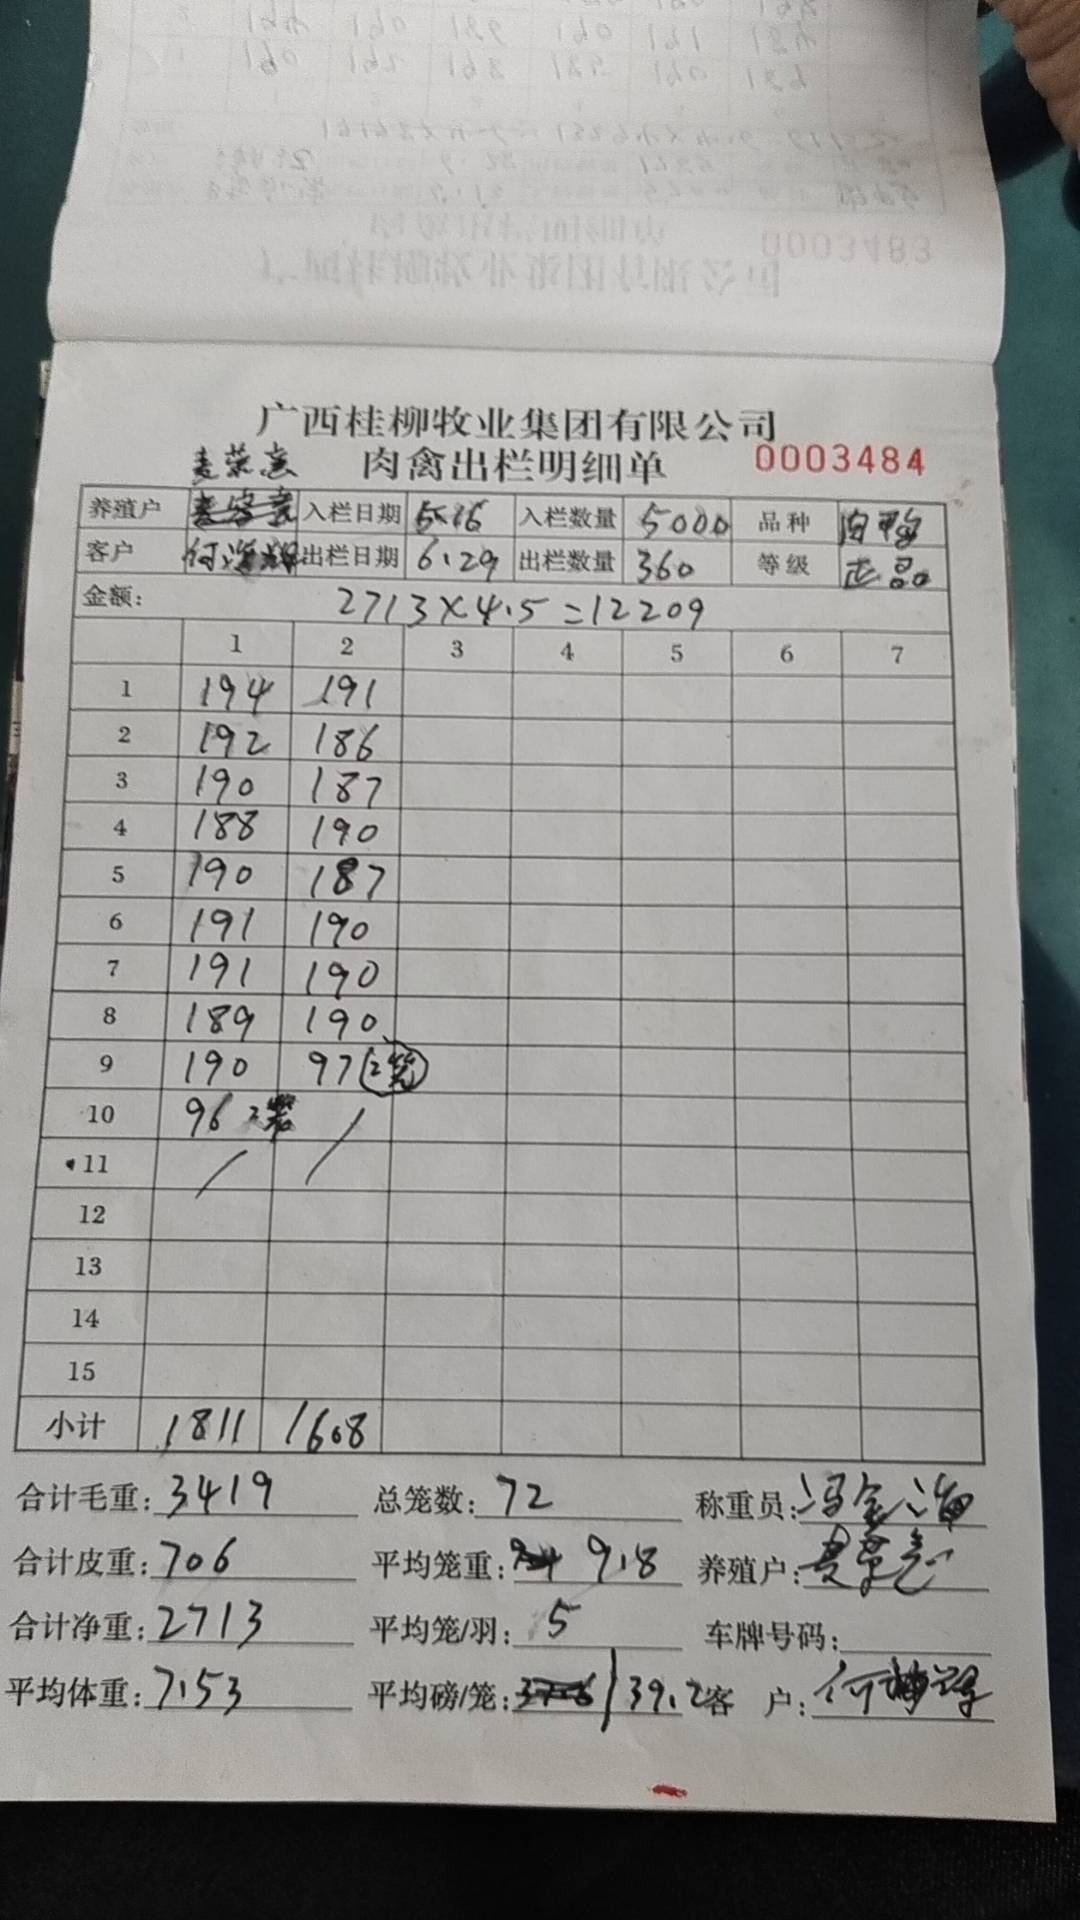 0003483
广西桂柳牧业集团有限公司
肉禽出栏明细单 0003484
养殖户 入栏日期 5.16 入栏数量 5000 品种 肉鸭
客户 出栏日期 6.29 出栏数量 360 等级 正品
金额: 2713×4.5=12209
1 2 3 4 5 6 7
1 194 191
2 192 186
3 190 187
4 188 190
5 190 187
6 191 190
7 191 190
8 189 190
9 190 97 2笼
10 96 2笼
11
12
13
14
15
小计 1811 1608
合计毛重: 3419 总笼数: 72 称重员:
合计皮重: 706 平均笼重: 9.8 养殖户:
合计净重: 2713 平均笼/羽: 5 车牌号码:
平均体重: 7.53 平均磅/笼: 39.2 客 户: